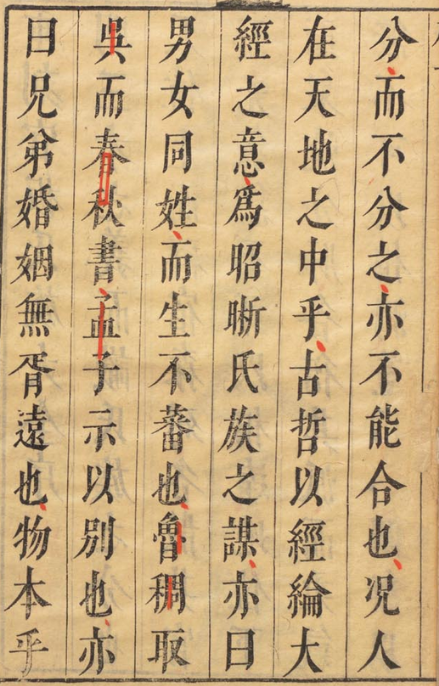 分而不分之亦不能合也况人
在天地之中乎古哲以經綸大
經之意爲昭晰氏族之謀亦曰
男女同姓而生不蕃也魯稠取
吳而春秋書孟子示以別也亦
曰兄弟婚姻無胥遠也物本乎